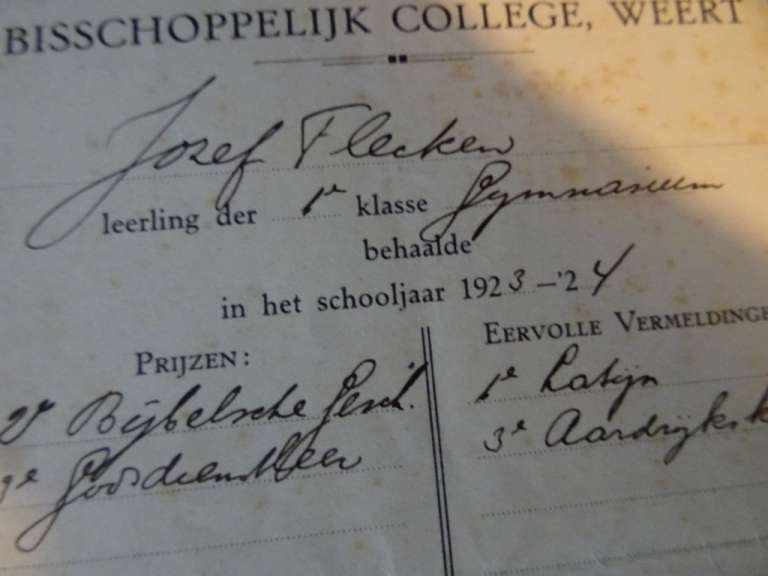 BISSCHOPPELIJK COLLEGE, WEERT
Jozef Flecken
leerling der 1e klasse Gymnasium
behaalde
in het schooljaar 1923–'24
PRIJZEN:
2e Bijbelsche Gesch.
Godsdienstleer
EERVOLLE VERMELDINGE
1e Latijn
3e Aardrijksk